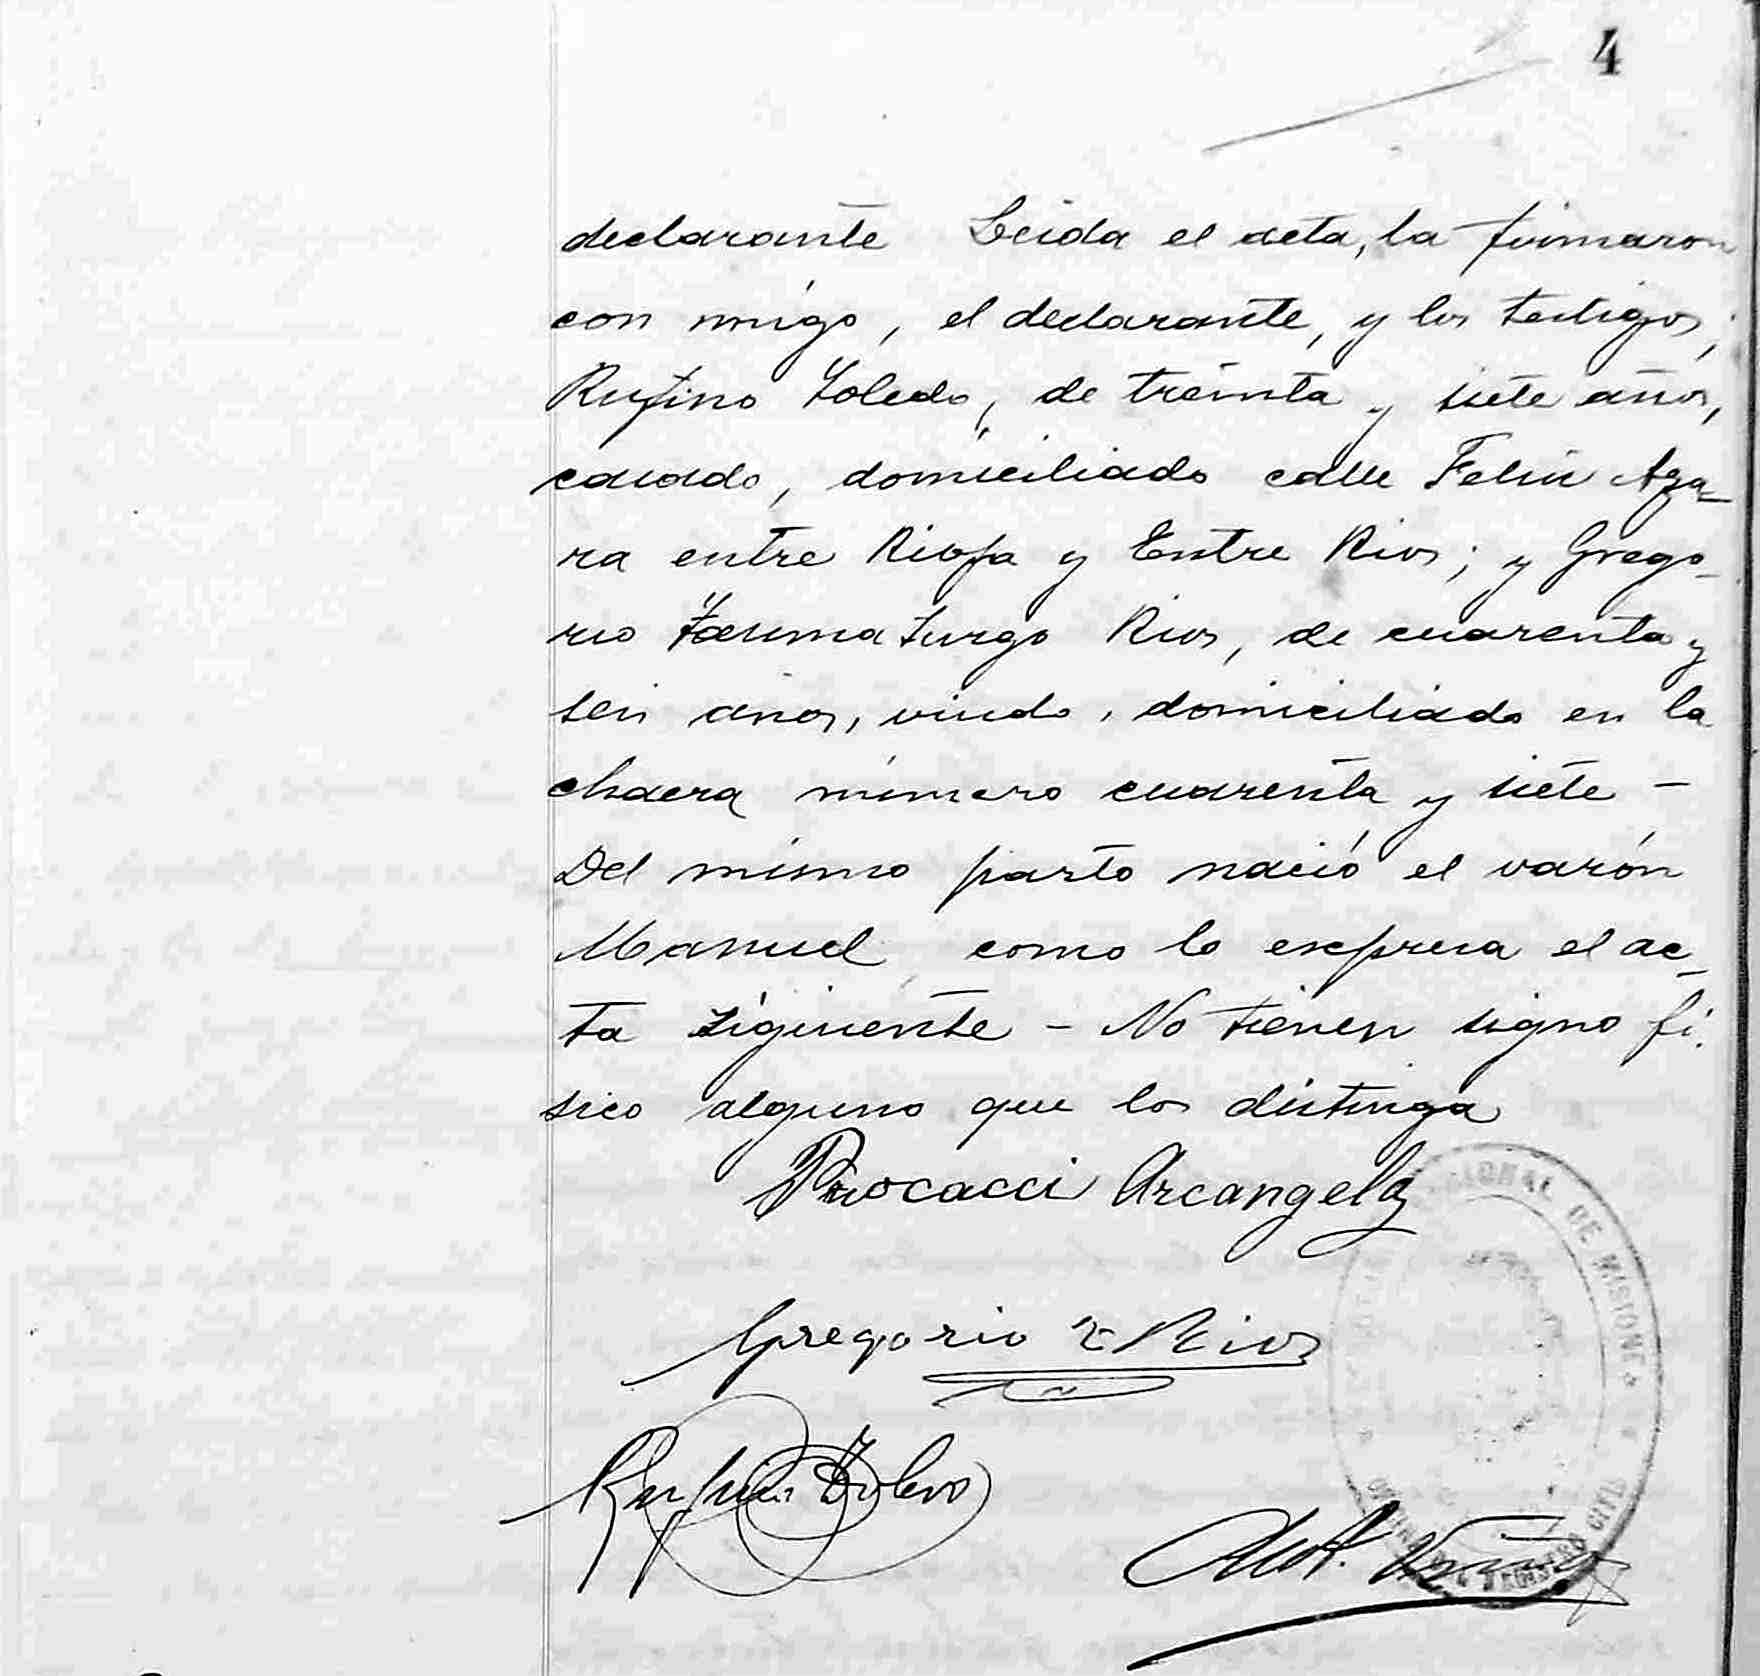 4
declarante Leida el acta, la firmaron
con migo, el declarante, y los testigos;
Rufino Toledo, de treinta y siete años,
casado, domiciliado calle Felix Aza-
ra entre Rioja y Entre Rios; y Grego-
rio Taumaturgo Rios, de cuarenta y
seis años, viudo, domiciliado en la
chacra número cuarenta y siete -
Del mismo parto nació el varón
Manuel como lo expresa el ac-
ta siguiente - No tienen signo fí-
sico alguno que los distinga
Procacci Arcangelo
Gregorio T Rios
Rufino Toledo
DE MISIONES
REGISTRO CIVIL